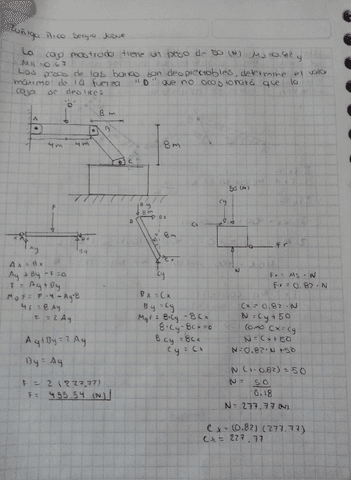 La caja mostrada tiene un peso de 50 (N) Ms=0.82 y
Mk=0.67
Los pesos de las barras son despreciables, determine el valor
máximo de la fuerza "D" que no ocasionará que la
caja se deslice
D
8 m
A
B
4m 4m
8 m
C
50 (N)
Cy
Cx
N
Fr
F
Ay
By
8m
8m
Cx
Cy
Ax = Bx
Ay + By - F = 0
F = Ay + By
4F = 8 Ay
F = 2 Ay
Ay + By = 2 Ay
By = Ay
F = 2 (227.77)
F = 455.54 (N)
Bx = Cx
By = Cy
8·Cy - 8Cx = 0
8Cy = 8Cx
Cy = Cx
Fr = Ms · N
Fr = 0.82 · N
Cx = 0.82 · N
N = Cy + 50
Como Cx = Cy
N = Cx + 50
N = 0.82·N + 50
N (1 - 0.82) = 50
N = 50
0.18
N = 277.77 (N)
Cx = (0.82) (277.77)
Cx = 227.77